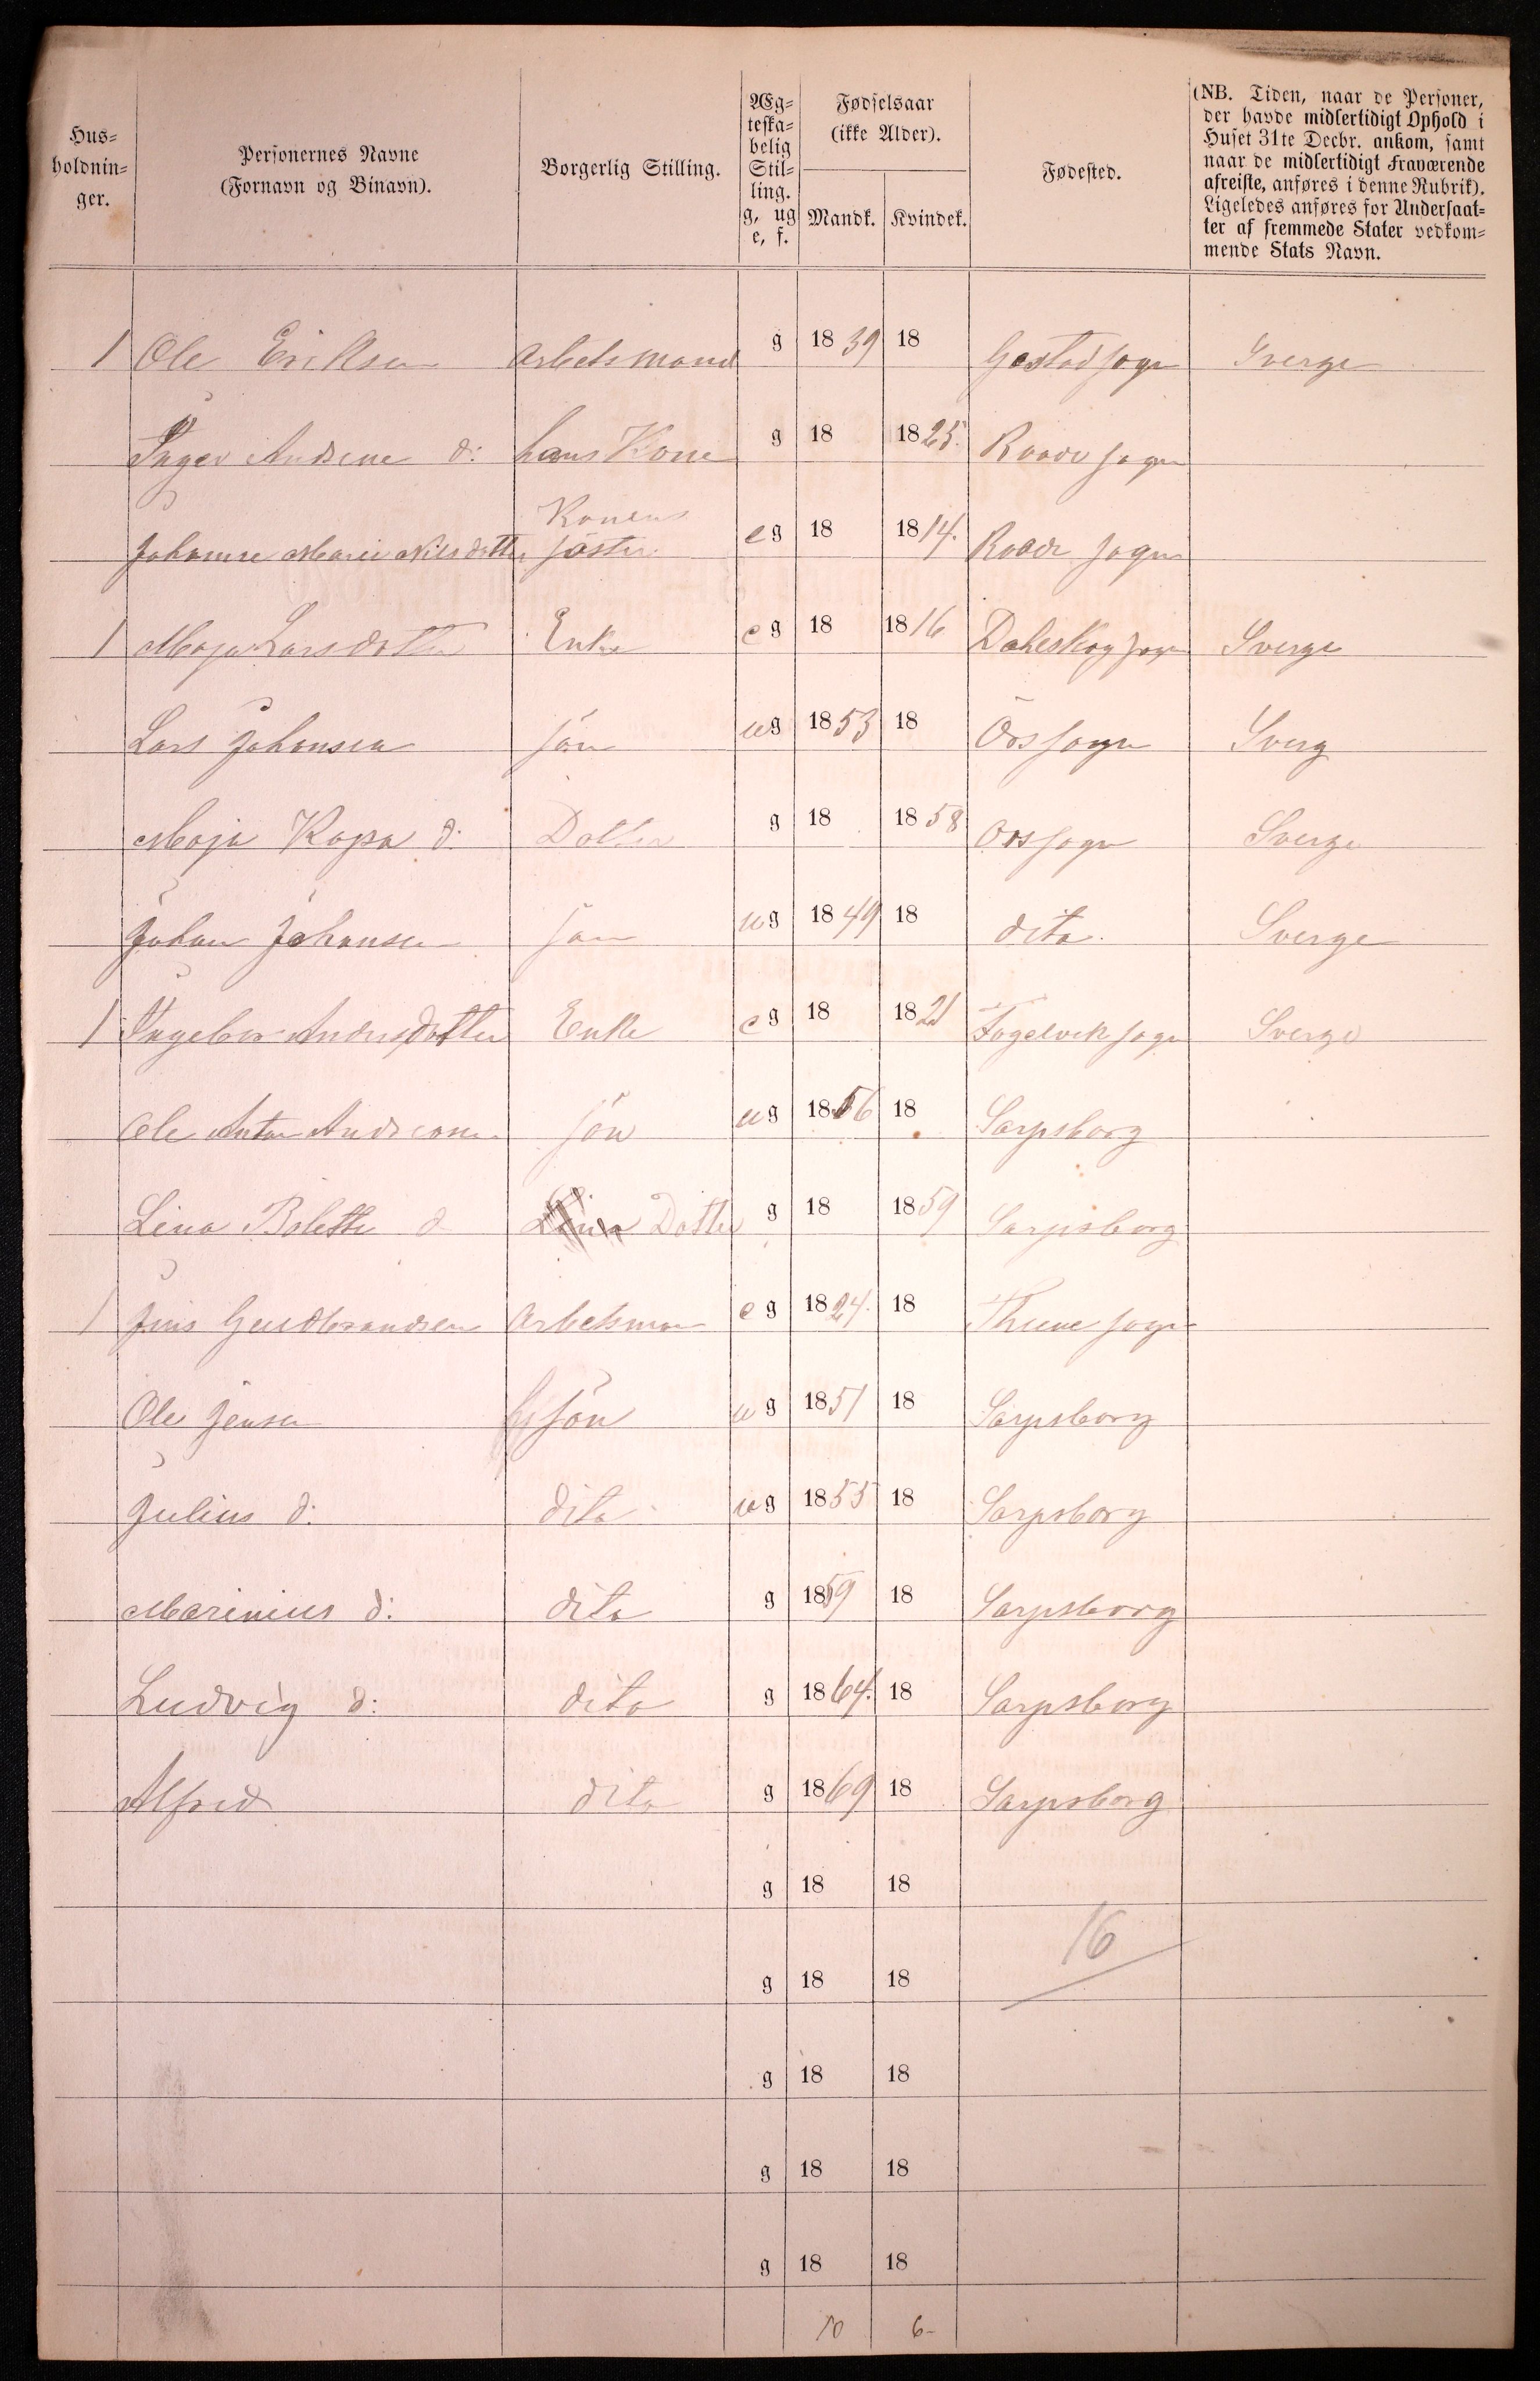 Hus=
holdnin=
ger.
Personernes Navne
(Fornavn og Binavn).
Borgerlig Stilling.
Æg=
teska=
belig
Stil=
ling.
g, ug
e, f.
Fødselsaar
(ikke Alder).
Mandk. Kvindek.
Fødested.
(NB. Tiden, naar de Personer,
der havde midlertidigt Ophold i
Huset 31te Decbr. ankom, samt
naar de midlertidigt Fraværende
afreiste, anføres i denne Rubrik).
Ligeledes anføres for Undersaat=
ter af fremmede Stater vedkom=
mende Stats Navn.
1 Ole Eriksen Arbetsmand g 1839 18 Gestad sogn Sverge
Inger Andrine d: hans Kone g 18 1825. Raade sogn
Konens
Johanne Marie Nilsdotter søster e g 18 1814. Raade sogn
1 Maja Larsdotter Enke e g 18 1816 Daleskog sogn Sverge
Lars Johansen sön ug 1853 18 Örs sogn Sverg
Maja Kajsa d: Dotter g 18 1858 Örs sogn Sverge
Johan Johansen sön ug 1849 18 dito. Sverge
1 Ingebor Andersdotter Enke e g 18 1821 Fogelvik sogn Sverge
Ole Anton sön ug 1856 18 Sarpsborg
Lina Bolette d Dotter g 18 1859 Sarpsborg
1 Jens Guldbrandsen Arbetsman e g 1824. 18 Thune sogn
Ole Jensen sön ug 1851 18 Sarpsborg
Julius d: dito ug 1855 18 Sarpsborg
Marinius d: dito g 1859 18 Sarpsborg
Ludvig d: dito g 1864. 18 Sarpsborg
Alfred dito g 1869 18 Sarpsborg
g 18 18
16
g 18 18
g 18 18
g 18 18
g 18 18
10 6-